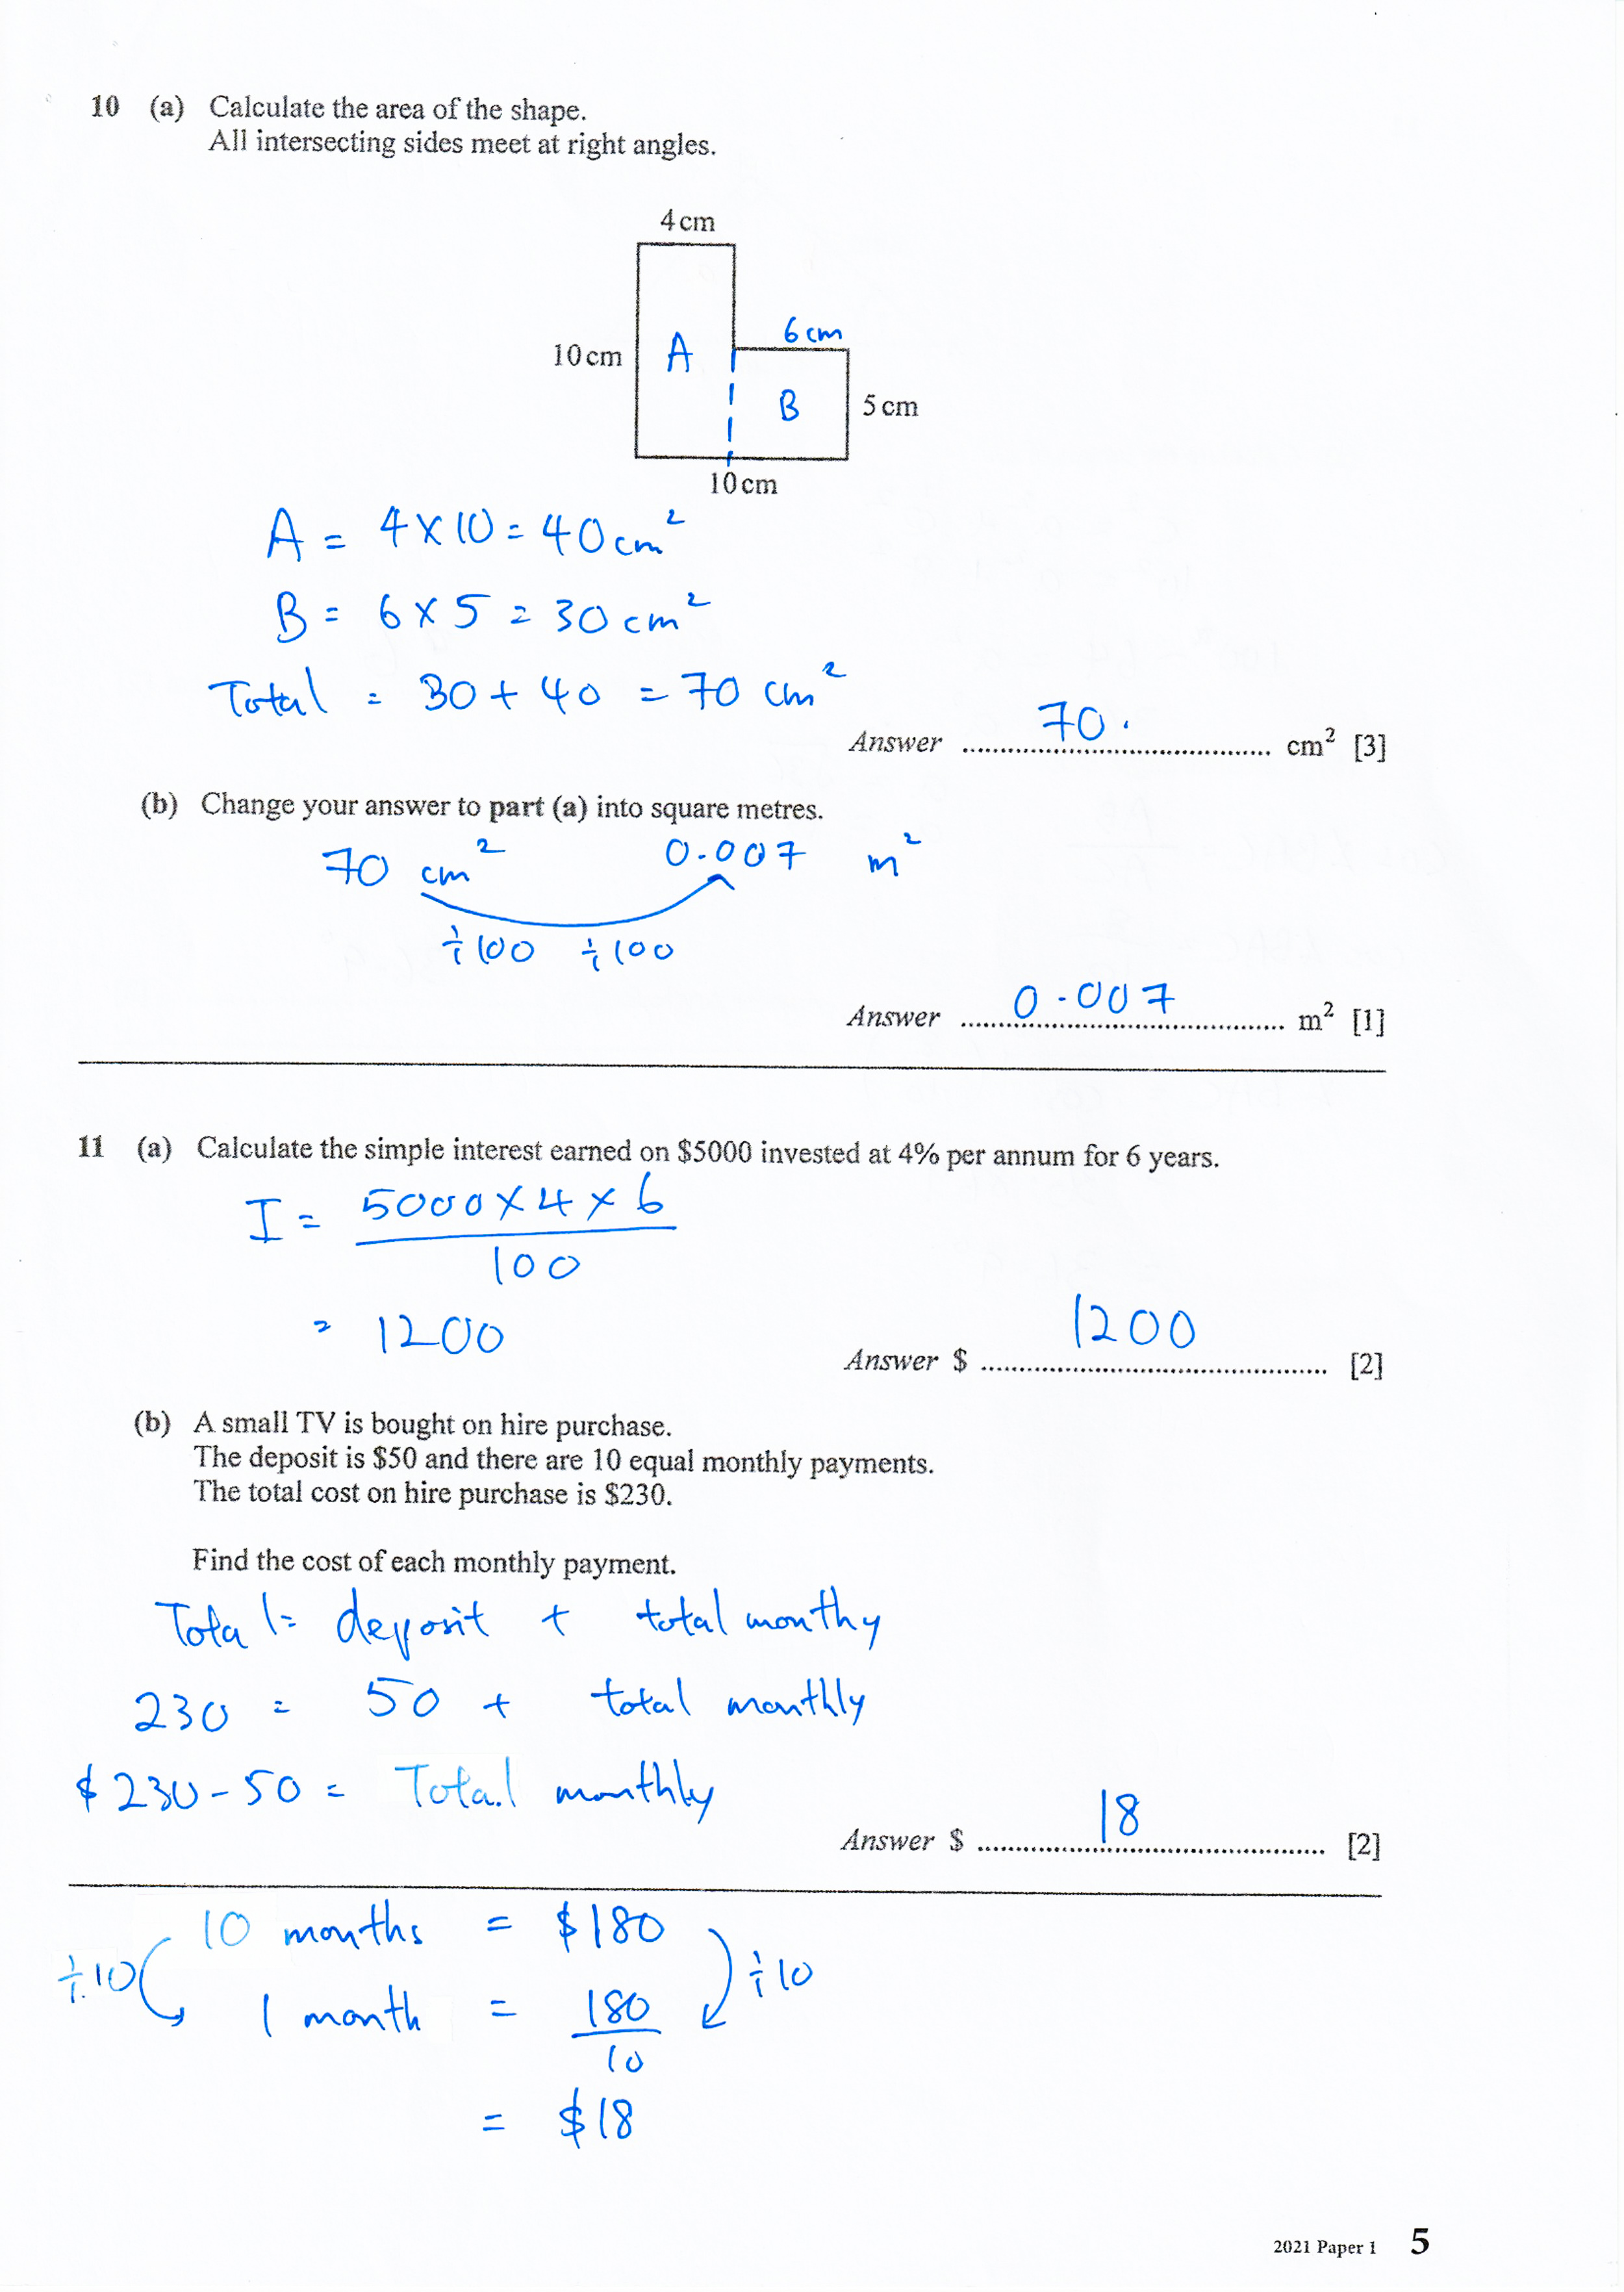 10 (a) Calculate the area of the shape.
All intersecting sides meet at right angles.
4 cm
6 cm
10 cm
A
B
5 cm
10 cm
A = 4 × 10 = 40 cm²
B = 6 × 5 = 30 cm²
Total = 30 + 40 = 70 cm²
Answer 70. cm² [3]
(b) Change your answer to part (a) into square metres.
70 cm² 0.007 m²
÷100 ÷100
Answer 0.007 m² [1]
11 (a) Calculate the simple interest earned on $5000 invested at 4% per annum for 6 years.
I = 5000 × 4 × 6
100
= 1200
Answer $ 1200 [2]
(b) A small TV is bought on hire purchase.
The deposit is $50 and there are 10 equal monthly payments.
The total cost on hire purchase is $230.
Find the cost of each monthly payment.
Total = deposit + total monthy
230 = 50 + total monthly
$230 - 50 = Total monthly
Answer $ 18 [2]
10 months = $180
÷10 ÷10
1 month = 180
10
= $18
2021 Paper 1 5